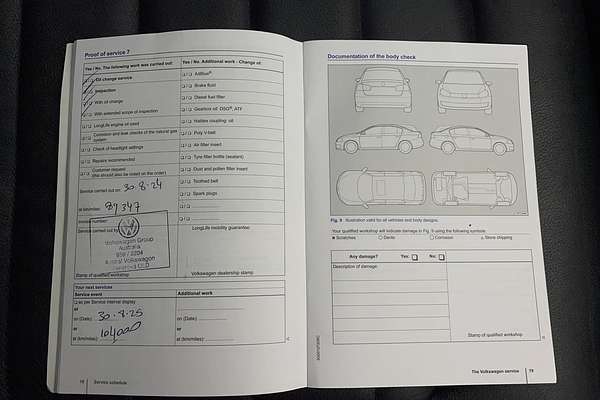 Proof of service 7
Yes / No. The following work was carried out:
Oil change service
Inspection
With oil change
With extended scope of inspection
LongLife engine oil used
Corrosion and leak checks of the natural gas
system
Check of headlight settings
Repairs recommended
Customer request
(this should also be noted on the order)
Service carried out on 30.8.24
at km/miles: 89347
Service carried out by
Volkswagen Group
Australia
Stamp of qualified workshop
Yes / No. Additional work - Change of:
AdBlue®
Brake fluid
Diesel fuel filter
Gearbox oil: DSG®, ATF
Haldex coupling: oil
Poly V-belt
Air filter insert
Tyre filler bottle (sealant)
Dust and pollen filter insert
Toothed belt
Spark plugs
LongLife mobility guarantee:
Volkswagen dealership stamp
Your next services
Service event
Additional work
as per Service interval display
or
on (Date) 30.8.25
on (Date)
or
or
at (km/miles): 104000
at (km/miles):
Service schedule
Documentation of the body check
Fig. 9 Illustration valid for all vehicles and body designs.
Your qualified workshop will indicate damage in Fig. 9 using the following symbols:
Scratches
Dents
Corrosion
Stone chipping
Any damage?
Yes:
No:
Description of damage:
Stamp of qualified workshop
The Volkswagen service